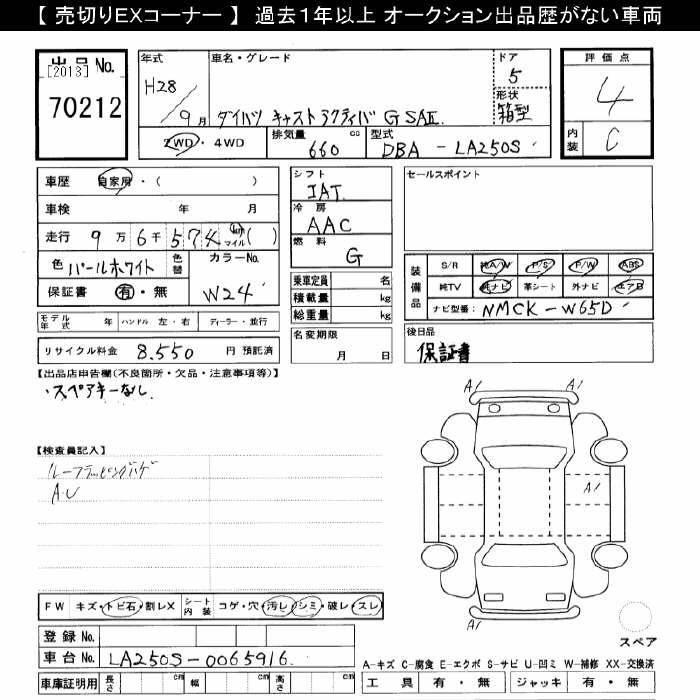 【 売切りEXコーナー 】 過去1年以上 オークション出品歴がない車両
出品 No.
[2013]
70212
年式
H28
／ 9 月
車名・グレード
ダイハツ キャスト アクティバ G SAⅡ
ドア
5
形状
箱型
評価点
4
内装
C
2WD ・ 4WD
排気量
660 cc
型式
DBA - LA250S
車歴 自家用・( )
車検 年 月
走行 9 万 6 千 5 7 4 km マイル ( )
色 パールホワイト
色替
カラーNo.
W24
保証書 有・無
シフト
IAT
冷房
AAC
燃料
G
乗車定員 名
積載量 kg
総重量 kg
セールスポイント
装備品
S/R 純A/W P/S P/W ABS
純TV 純ナビ 革シート 外ナビ エアB
ナビ型番: NMCK-W65D
モデル年式 年 ハンドル 左・右 ディーラー・並行
リサイクル料金 8.550 円 預託済
名変期限
月 日
後日品
保証書
【出品店申告欄(不良箇所・欠品・注意事項等)】
・スペアキーなし
【検査員記入】
ルーフラッピングハゲ
A.U
A1 A1
A1
A1
FW キズ・トビ石・割レX
シート内装 コゲ・穴・汚レ・シミ・破レ・スレ
登録 No.
車台 No. LA250S-0065916
車庫証明用 長さ cm 幅 cm 高さ cm
スペア
A-キズ C-腐食 E-エクボ S-サビ U-凹ミ W-補修 XX-交換済
工具 有・無 ジャッキ 有・無